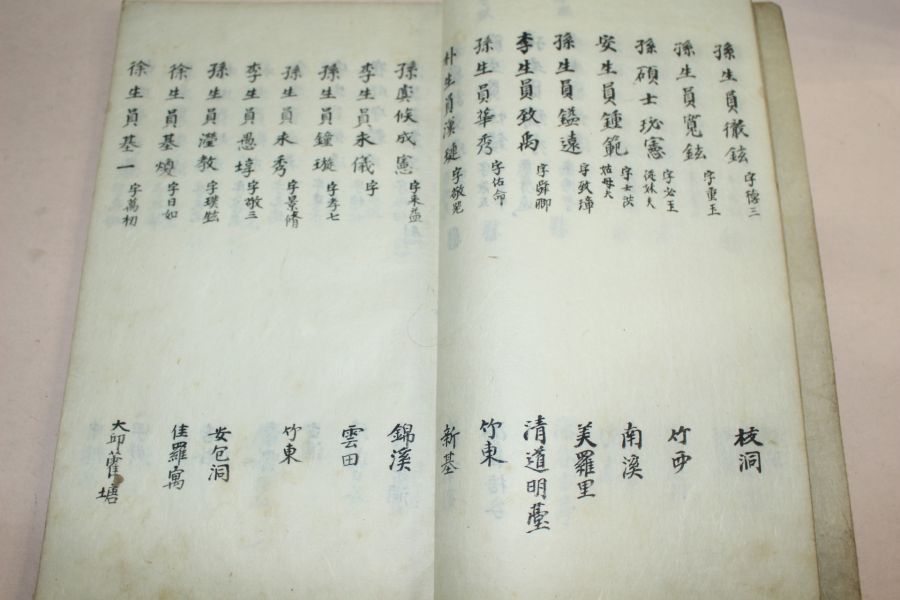 孫生員徹鉉 字德三 枝洞
孫生員寬鉉 字重玉 竹西
孫碩士珌憲 字必玉 從妹夫 南溪
安生員鍾範 字士 姑母夫
孫生員鎰遠 字致漳 美羅里
李生員致禹 字舜卿 清道明臺
孫生員華秀 字佑命 竹東
朴生員漢璉 字敬兄 新基
孫虞候成憲 字来益 錦溪
李生員来儀 字 雲田
孫生員鐘璇 字孝七
孫生員来秀 字景脩 竹東
李生員愚埻 字敬三
孫生員瀅教 字璞 安包洞
徐生員基煥 字日如 佳羅寓
徐生員基一 字萬初 大邱藿塘